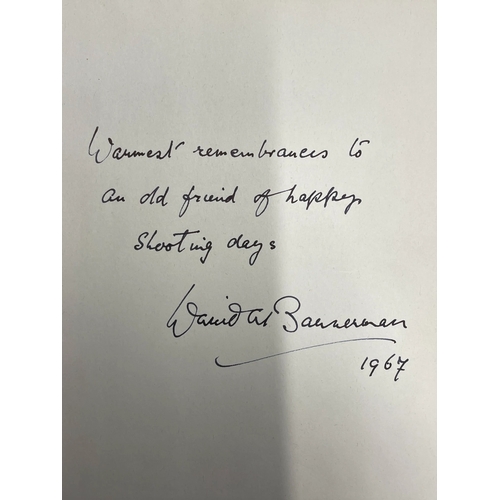 Warmest remembrances to
an old friend of happy
shooting days
David A Bannerman
1967